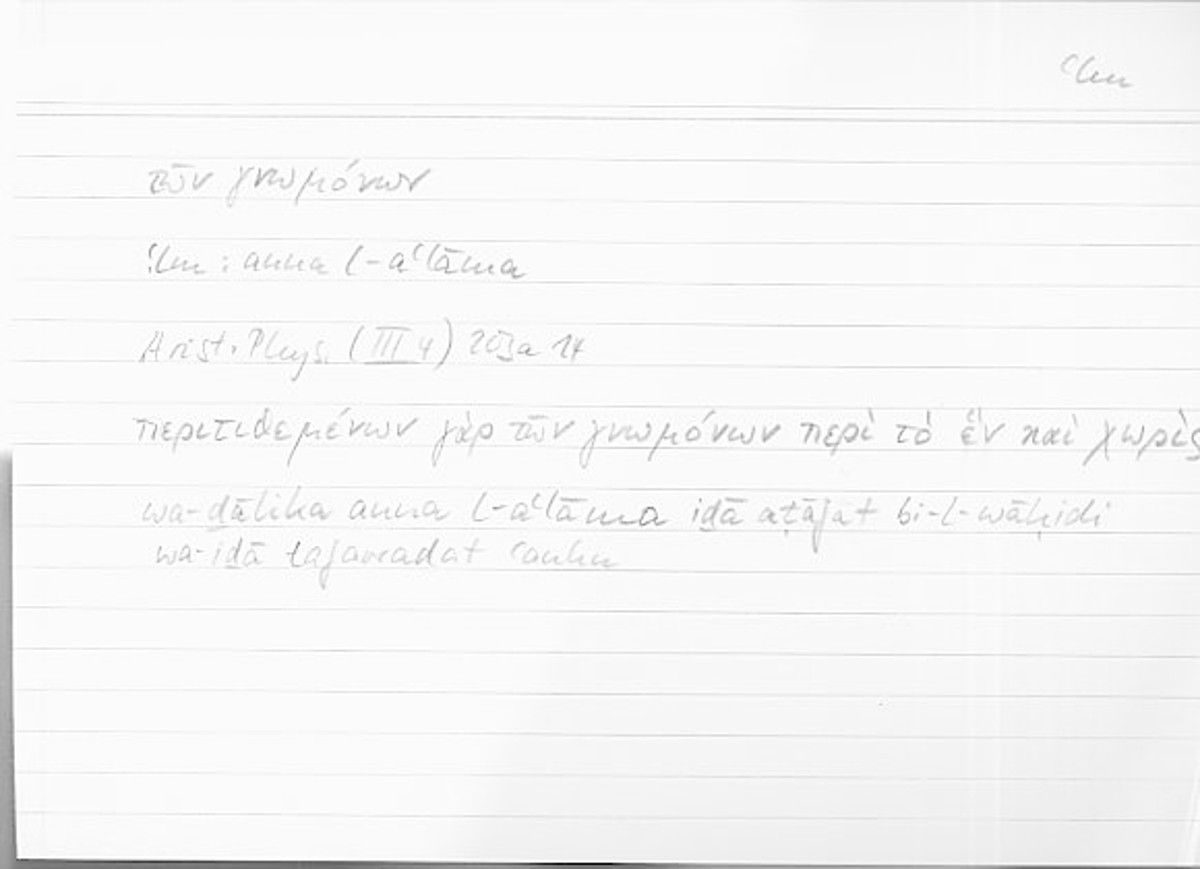 ʿlm
τῶν γνωμόνων
ʿlm : anna l-aʿlāma
Arist. Phys. (III 4) 203a 14
περιτιθεμένων γὰρ τῶν γνωμόνων περὶ τὸ ἓν καὶ χωρὶς
wa-ḏālika anna l-aʿlāma iḏā aṭāfat bi-l-wāḥidi
wa-iḏā tafarradat ʿanhu